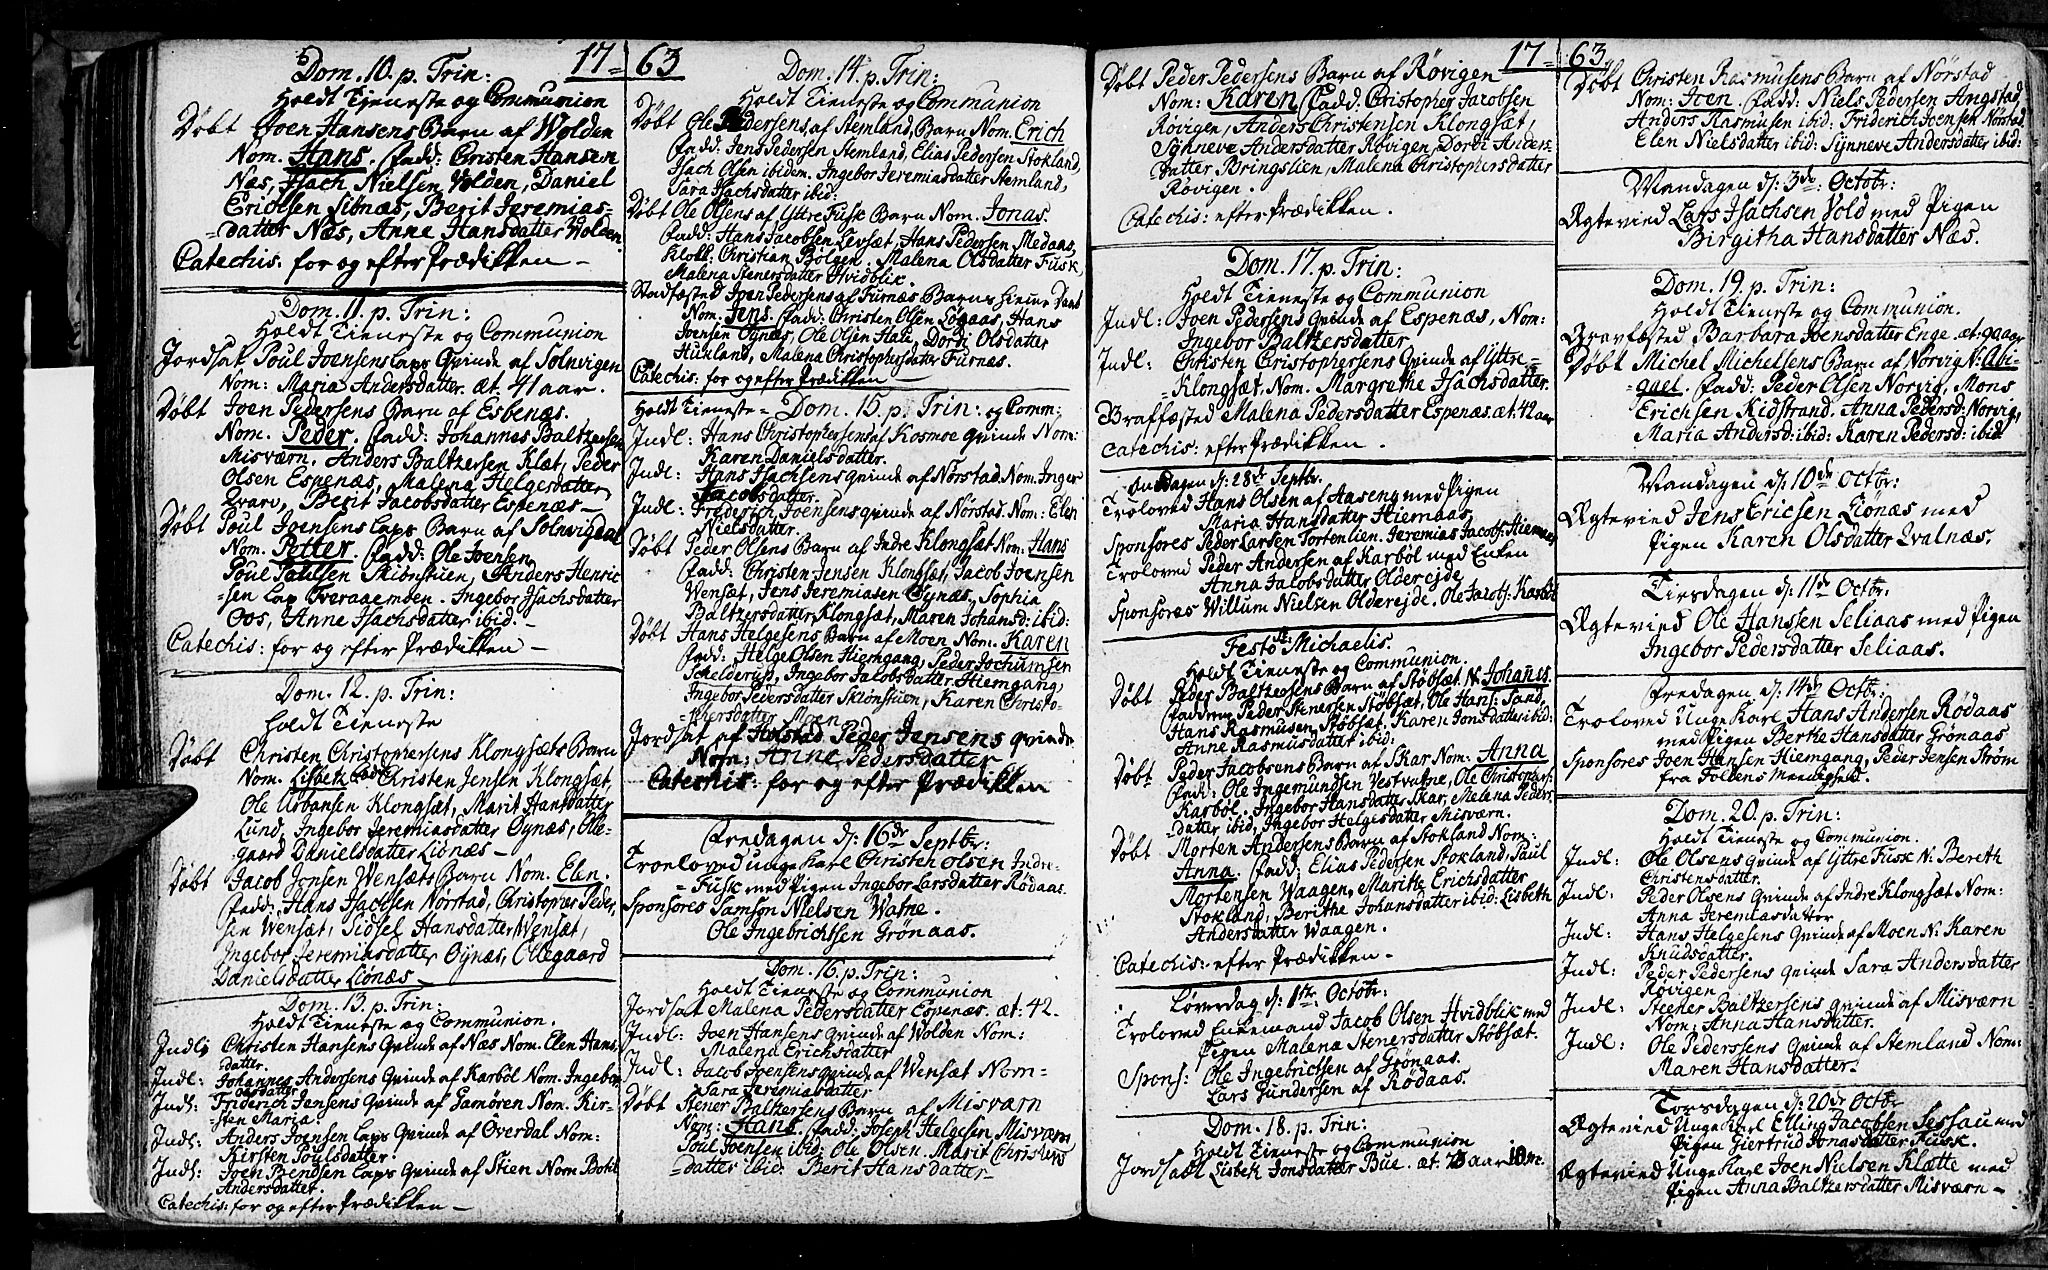 17 = 63
Dom. 10. p. Trin:
Holdt Tieneste og Communion
Døbt Joen Hansens Barn af Wolden
Nom. Hans. fadd: Christen Hansen
Næs, Isach Nielsen Volden, Daniel
Erichsen Sibnæs, Berit Jeremias-
datter Næs, Anne Hansdatter Wolden
Catechis: for og efter Prædikken –
Dom. 11. p. Trin:
Holdt Tieneste og Communion
Jordsat Poul Joensens Laps Qvinde af Solvvigen
Nom: Maria Andersdatter æt. 41 aar.
Døbt Joen Pedersens Barn af Esbenæs.
Nom. Peder. fadd: Johannes Baltzersen
Misværn. Anders Baltzersen Klæt, Peder
Olsen Espenæs, Malena Helgesdatter
Qvare, Berit Jacobsdatter Espenæs –
Døbt Poul Joensens Laps Barn af Solvvig
Nom. Petter. fadd: Ole Joensen
Poul Paulsen Skiønstuen, Anders Henric
sen Lap Tveraagemben. Ingebor Isachsdatter
Oos, Anne Isachsdatter ibid. –
Catechis: for og efter Prædikken –
Dom. 12. p. Trin:
Holdt Tieneste
Døbt Christen Christophersens Klongsæts Barn
Nom. Lisbeth fadd: Christen Jensen Klongsæt,
Ole Urbansen Klongsæt, Marit Hansdatter
Lund, Ingebor Jeremiasdatter Oynæs, Olle-
gaard Danielsdatter Liønæs –
Døbt Jacob Jonsen Wensæts Barn Nom. Elen.
fadd: Hans Isachsen Nørstad, Christopher Peder-
sen Wensæt, Sidsel Hansdatter Wensæt,
Ingebor Jeremiasdatter Oynæs, Ollegaard
Danielsdatter Liønæs –
Dom. 13. p. Trin:
Holdt Tieneste og Communion.
Indl: Christen Hansens Qvinde af Næs Nom. Elen Hans-
datter.
Indl: Johannes Andersens Qvinde af Karbøl Nom: Ingebor
Olsdatter
Indl: Friderich Jensens Qvinde af Gamøren Nom. Kir-
sten Maria:
Indl: Anders Joensen Laps Qvinde af Overdal Nom:
Kirsten Poulsdatter.
Indl: Joen Bendsen Laps Qvinde af Stien Nom Botil
Andersdatter.
Catechis: for og efter Prædikken –
Dom. 14. p. Trin:
Holdt Tieneste og Communion
Døbt Ole Pedersens af Stemland, Barn Nom. Erich
fadd: Jens Pedersen Stemland, Elias Pedersen Stokland,
Isach Olsen ibidem. Ingebor Jeremiasdatter Stemland,
Sara Isachsdatter ibid:
Døbt Ole Olsens af Yttre Fusk Barn Nom. Jonas.
fadd: Hans Jacobsen Levsæt, Hans Pedersen Medaas,
Klokk: Christian Bølgen. Malena Olsdatter Fusk,
Malena Stenersdatter Hvidblik.
Stadfæsted Joen Pedersens af Furnæs Barns Hieme Daab
Nom. Jens. fadd: Christen Olsen Løgaas, Hans
Joensen Oynæs, Ole Olsen Hau, Dordi Olsdatter
Huxland, Malena Christophersdatter Furnæs.
Catechis: for og efter Prædikken –
Holdt Tieneste = Dom. 15. p. Trin: og Comm:
Indl: Hans Christophersens af Kosmoe Qvinde Nom:
Karen Danielsdatter.
Indl: Hans Isachsens Qvinde af Nørstad. Nom. Inger
Jacobsdatter.
Indl: Frederich Joensens Qvinde af Nørstad. Nom: Elen
Nielsdatter.
Døbt Peder Olsens Barn af Indre Klongsæt Nom: Hans
fadd: Christen Jensen Klongsæt, Jacob Joensen
Wensæt, Jens Jeremiasen Oynæs. Sophia
Baltzersdatter Klongsæt, Maren Johansd: ibid:
Døbt Hans Helgesens Barn af Moen Nom: Karen
fadd: Helge Olsen Hiemgang, Peder Jochumsen
Schelderup, Ingebor Jacobsdatter Hiemgang,
Ingebor Pedersdatter Skiønstuen, Karen Christo-
phersdatter Moen
Jordsat af Hofstad Peder Jensens Qvinde
Nom: Anne Pedersdatter
Catechis: for og efter Prædikken
Fredagen d: 16de Septbr:
Troeloved unge Karl Christen Olsen Indre-
= Fusk med Pigen Ingebor Larsdatter Rødaas.
Sponsores Samson Nielsen Watne.
Ole Ingebrichtsen Grønaas.
Dom. 16. p. Trin:
Holdt Tieneste og Communion
Jordsat Malena Pedersdatter Espenæs. æt: 42.
Indl: Joen Hansens Qvinde af Wolden Nom:
Malena Erichsdatter
Indl: Jacob Joensens Qvinde af Wensæt Nom –
Sara Jeremiasdatter
Døbt Stener Baltzersens Barn af Misværn
Nom: Hans. fadd: Joseph Helgesen Misværn,
Poul Joensen ibid: Ole Olsen. Marit Christens
datter ibid: Berit Hansdatter –
17 = 63
Døbt Peder Pedersens Barn af Røvigen
Nom: Karen fadd: Christopher Jacobsen
Røvigen, Anders Christensen Klongsæt,
Synneve Andersdatter Røvigen, Dordi Anders-
datter Bringslien, Malena Christophersdatter
Røvigen.
Catechis: efter Prædikken.
Dom. 17. p. Trin:
Holdt Tieneste og Communion
Indl: Joen Pedersens Qvinde af Espenæs, Nom:
Ingebor Baltzersdatter.
Indl: Christen Christophersens Qvinde af Yttre-
Klongsæt, Nom. Margrethe Isachsdatter.
Graffæsted Malena Pedersdatter Espenæs. æt. 42 aar
Catechis: efter Prædikken.
Onsdagen d: 28de Septbr.
Troloved Hans Olsen af Aaseng med Pigen
Maria Hansdatter Hiemaas
Sponsores Peder Larsen Tortenlien. Jeremias Jacobs: Hiemaas
Troloved Peder Andersen af Karbøl med Enken
Anna Jacobsdatter Oldereide
Sponsores Willum Nielsen Oldereide. Ole Jacobs: Karbøl
Festo St: Michaelis.
Holdt Tieneste og Communion.
Døbt Peder Baltzersens Barn af Støbsæt. N: Johanes.
faddere Peder Stenersen Støbsæt, Ole Hans: Sand,
Hans Rasmusen Støbsæt. Karen Jonsdatter ibid:
Anne Rasmusdatter ibid:
Døbt Peder Jacobsens Barn af Skar Nom: Anna
fadd: Ole Ingemundsen Vestvatne, Ole Christophers:
Karbøl, Ingebor Hansdatter Skar, Malena Peders-
datter ibid, Ingebor Helgesdatter Misværn.
Døbt Morten Andersens Barn af Stokland Nom:
Anna. fadd: Elias Pedersen Stokland, Paul
Mortensen Waagen, Marithe Erichsdatter
Stokland, Berithe Johansdatter ibid: Lisbeth
Andersdatter Waagen.
Catechis: efter Prædikken.
Løverdag d: 1ste Octobr:
Troloved Enkemand Jacob Olsen Hvidblik med
Pigen Malena Stenersdatter Støbsæt.
Spons: Ole Ingebrictsen af Grønaas.
Lars Gundersen af Rødaas.
Dom. 18. p. Trin:
Holdt Tieneste og Communion
Jordsatt Lisbeth Jonsdatter Bue. æt: 73 aar 10 m.
Døbt Christen Rasmusens Barn af Nørstad
Nom: Joen. fadd: Niels Pedersen Angstad
Anders Rasmusen ibid: Friderich Joensen Nørstad
Elen Nielsdatter ibid: Synneve Andersdatter ibid:
Mandagen d: 3de: Octobr:
Ægtevied Lars Isachsen Vold med Pigen
Birgitha Hansdatter Næs.
Dom. 19. p. Trin:
Holdt Tieneste og Communion.
Gravfæsted Barbara Joensdatter Enge. æt. 9 aar
Døbt Michel Michelsens Barn af Norvig N: Abi-
gael. fadd: Peder Olsen Norvig, Mons
Erichsen Kidstrand. Anna Pedersd: Norvig,
Maria Andersd: ibid: Karen Pedersd: ibid
Mandagen d: 10de Octbr:
Ægteviied Jens Ericsen Liønæs med
Pigen Karen Olsdatter Qvalnæs.
Tirsdagen d: 11de Octobr:
Ægteviied Ole Hanssen Seliaas med Pigen
Ingebor Pedersdatter Seliaas.
Fredagen d: 14de Octbr:
Troloved Unge Karl Hans Andersen Rødaas
med Pigen Berthe Hansdatter Grønaas
Sponsores Joen Hansen Hiemgang, Peder Jensen Strøm
fra Foldens Menighed.
Dom. 20. p. Trin:
Holdt Tieneste og Communion.
Indl: Ole Olsens Qvinde af Yttre Fusk N: Bereth
Christensdatter.
Indl: Peder Olsens Qvinde af Indre Klongsæt Nom:
Anna Jeremiasdatter
Indl: Hans Helgesens Qvinde af Moen N: Karen
Knudsdatter.
Indl: Peder Pedersens Qvinde Sara Andersdatter
Røvigen.
Indl: Steener Baltzersens Qvinde af Misværn
Nom: Anna Hansdatter.
Indl: Ole Pederssens Qvinde af Stemland Nom:
Maren Hansdatter.
Torsdagen d: 20de Octbr
Ægteviied Unge Karl Elling Jacobsen Sessau med
Pigen Giertrud Jonasdatter Fusk.
Ægteviied Unge Karl Joen Nielsen Klætte med
Pigen Anna Baltzersdatter Misværn –